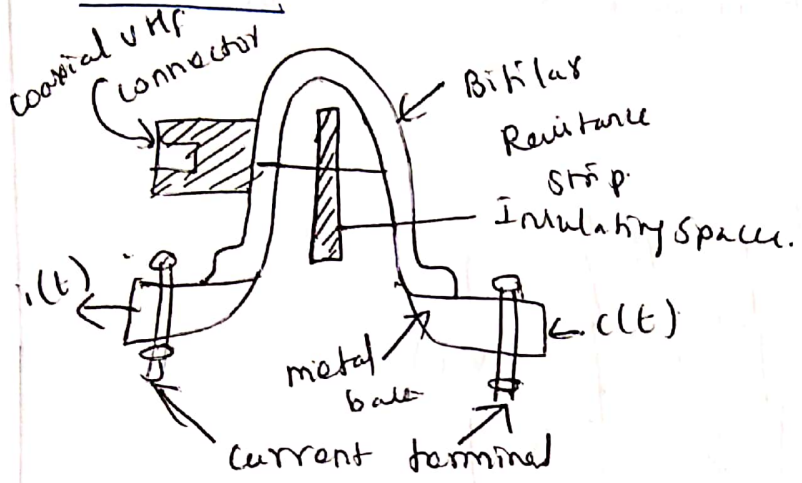 coaxial VHf
connector
Bifilar
Resistance
strip.
Insulating spacer.
i(t)
i(t)
metal
base
current terminal